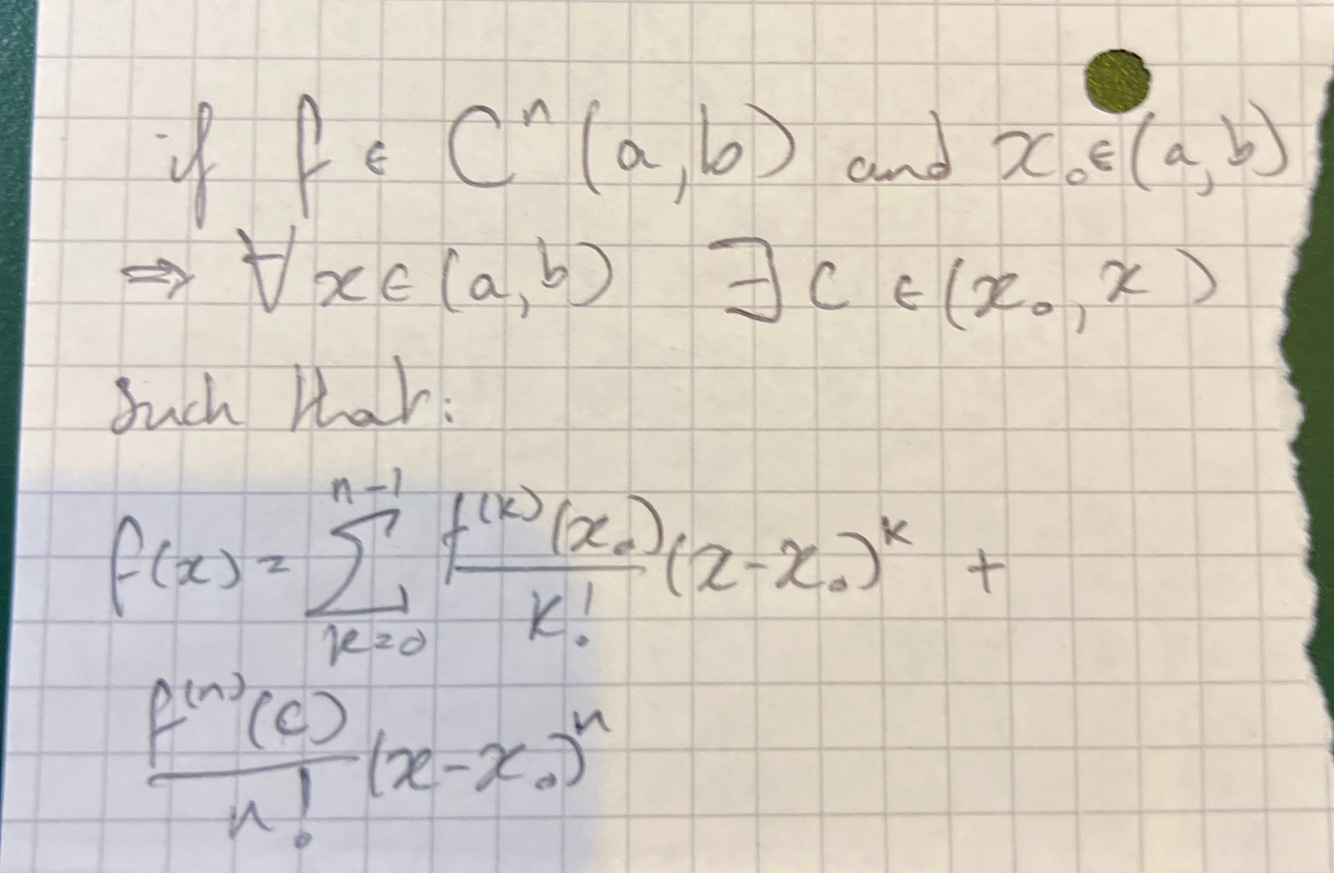 if f ∈ Cⁿ (a,b) and x₀∈(a,b)
⇒ ∀x∈(a,b) ∃ c ∈ (x₀, x)
such that:
f(x) = ∑_{k=0}^{n-1} \frac{f^{(k)}(x₀)}{k!}(x-x₀)^k +
\frac{f^{(n)}(c)}{n!}(x-x₀)^n